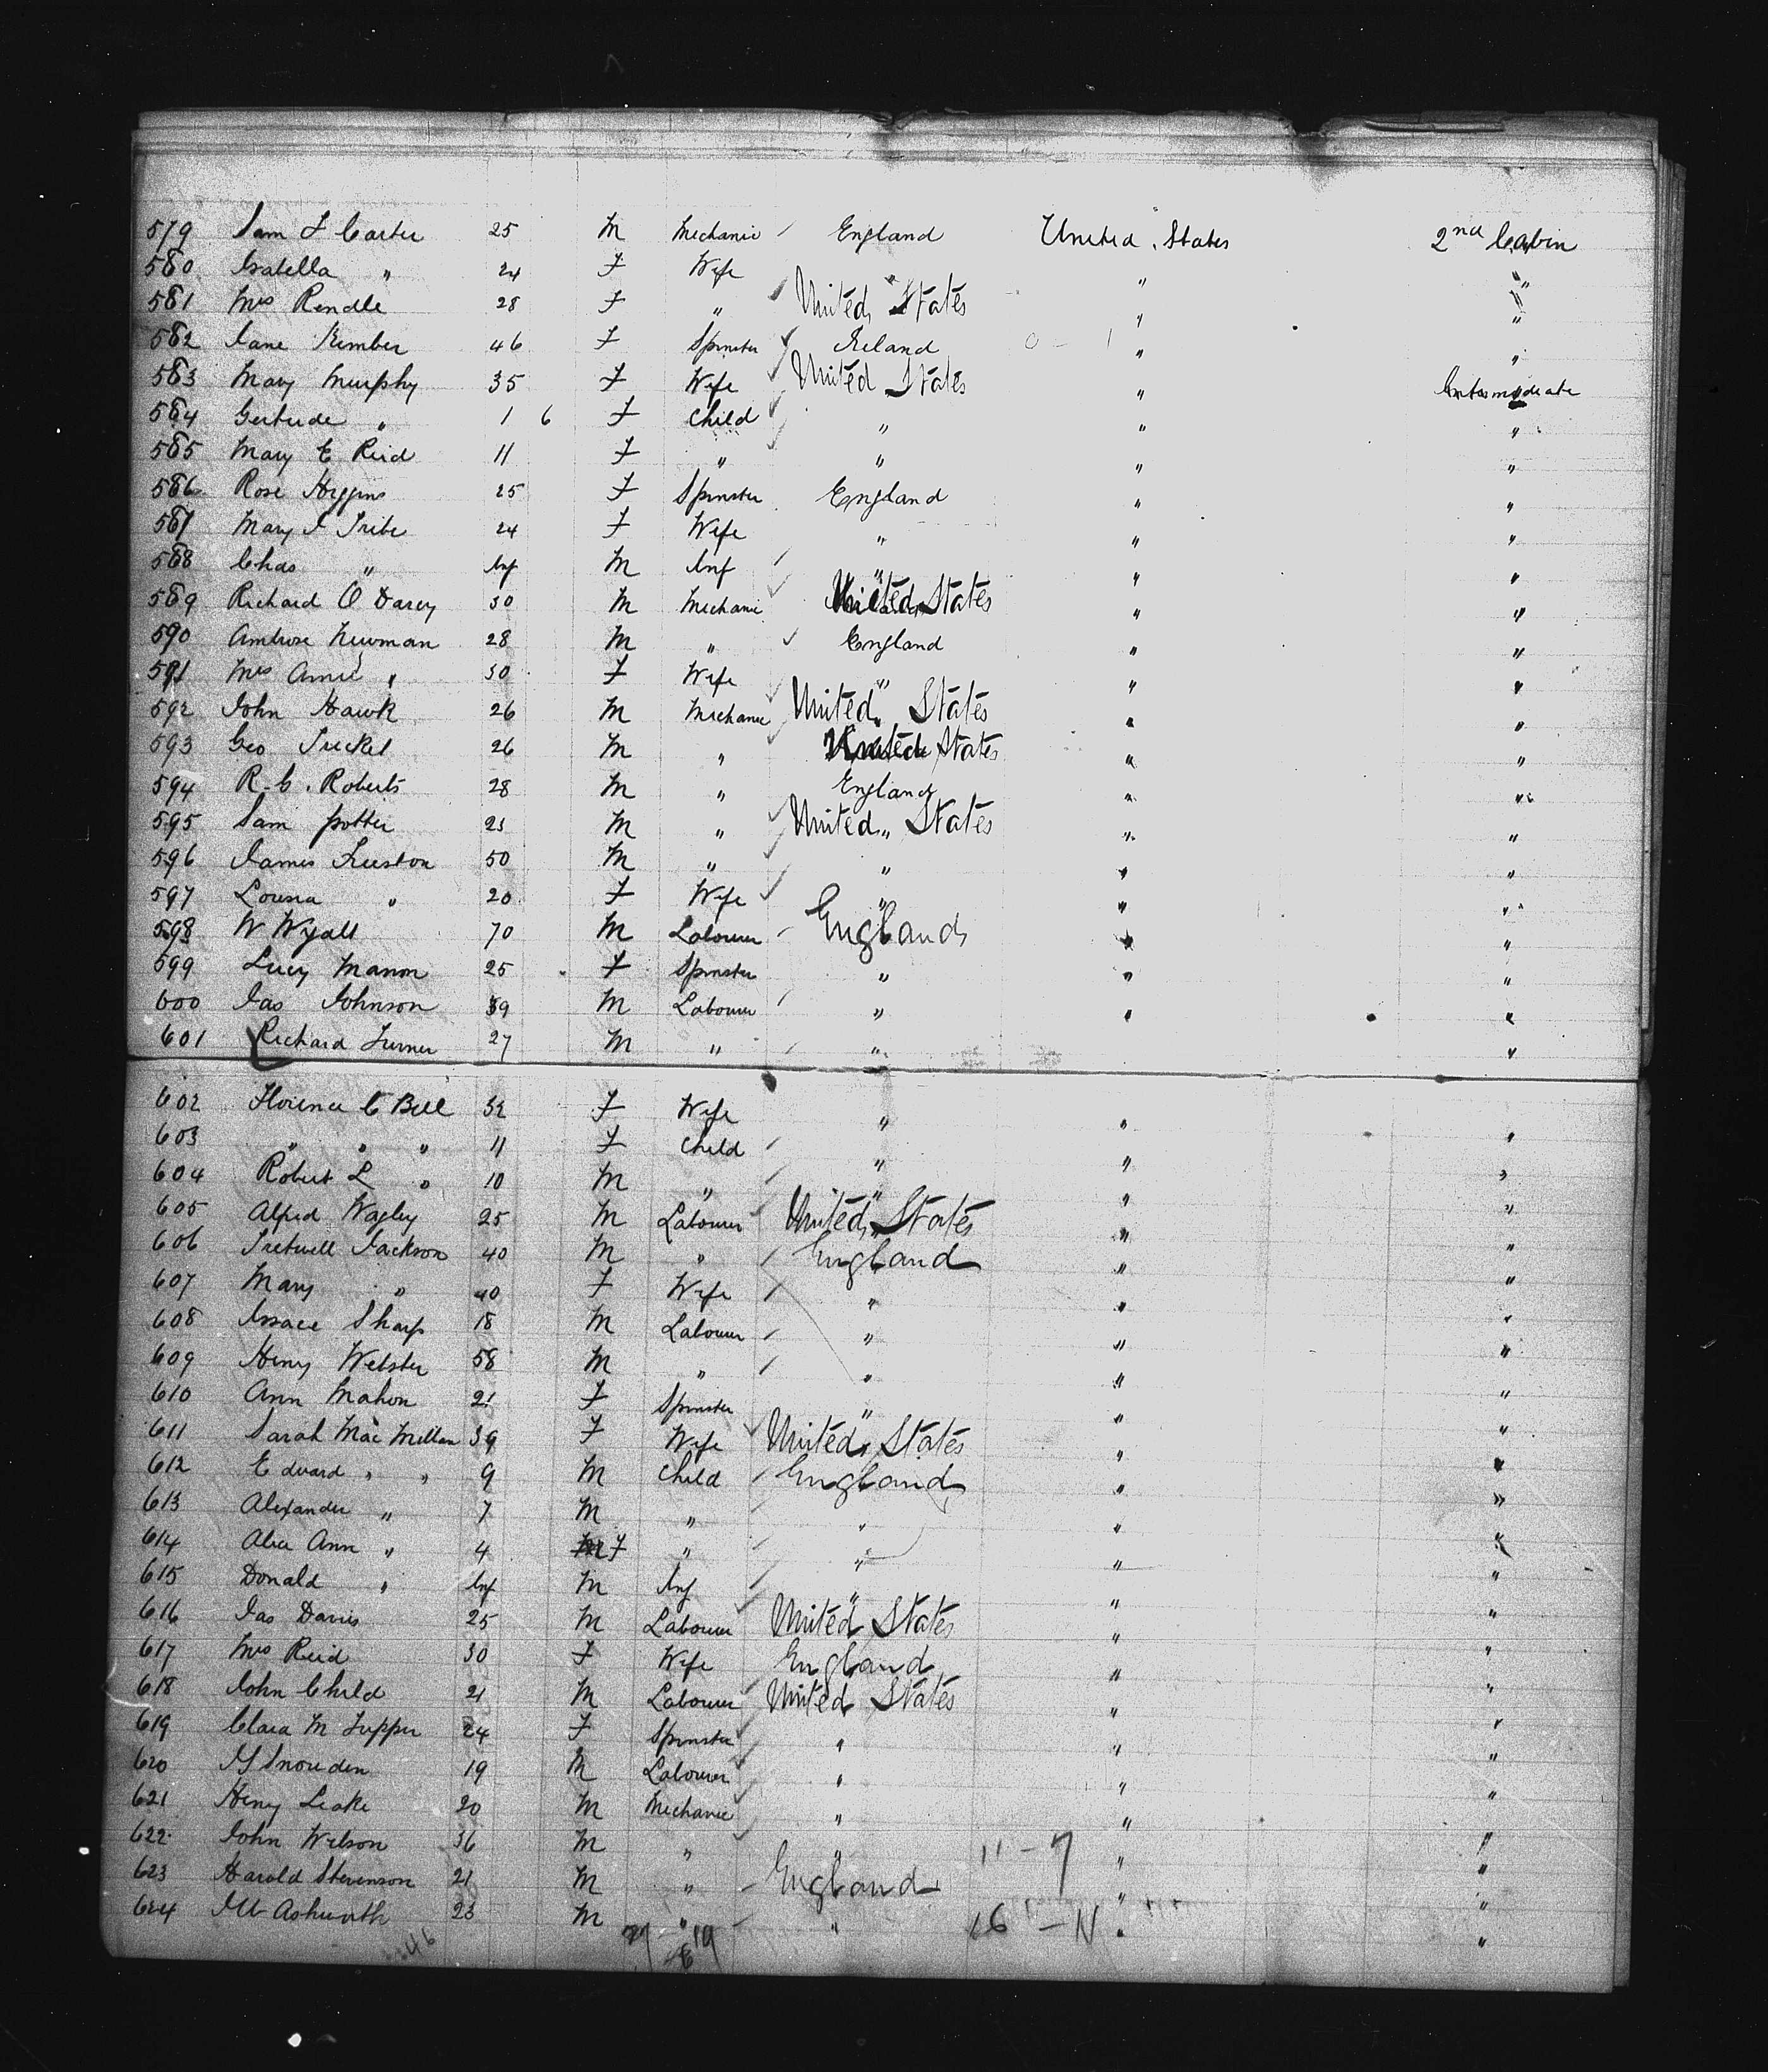 579 Sam F Carter 25 M Mechanic / England United States 2nd Cabin
580 Isabella " 24 F Wife " " "
581 Mrs Rendle 28 F " United States " "
582 Jane Kember 46 F Spinster Ireland 0 - 1 " "
583 Mary Murphy 35 F Wife United States " Intermediate
584 Gertrude " 1 6 F Child " " "
585 Mary E Reid 11 F " " " "
586 Rose Higgins 25 F Spinster England " "
587 Mary J Tribe 24 F Wife " " "
588 Chas " Inf M Inf " " "
589 Richard O Darcy 30 M Mechanic United States " "
590 Ambrose Newman 28 M " England " "
591 Mrs Annie " 30 F Wife " " "
592 John Hawk 26 M Mechanic United States " "
593 Geo 26 M " United States " "
594 R. C. Roberts 28 M " England " "
595 Sam Potter 21 M " United States " "
596 James 50 M " " " "
597 " 20 F Wife " " "
598 W Wyatt 70 M Labourer England " "
599 Lucy 25 F Spinster " " "
600 Jas Johnson 39 M Labourer " " "
601 Richard Turner 27 M " " "
602 Florence E Bell 32 F Wife " " "
603 " " " 11 F Child " " "
604 Robert L " 10 M " " " "
605 Alfred Wagley 25 M Labourer United States " "
606 Jackson 40 M " England " "
607 Mary " 40 F Wife " " "
608 Issace Sharp 18 M Labourer " " "
609 Henry Webster 58 M " " " "
610 Ann Mahon 21 F Spinster " " "
611 Sarah Mac Millan 39 F Wife United States " "
612 Edward " " 9 M Child England " "
613 Alexander " 7 M " " " "
614 Alice Ann " 4 F " " " "
615 Donald " Inf M Inf " " "
616 Jas Davis 25 M Labourer United States " "
617 Mrs Reid 30 F Wife England " "
618 John Child 21 M Labourer United States " "
619 Clara M Tupper 24 F Spinster " " "
620 Snowden 19 M Labourer " " "
621 Henry Leake 20 M Mechanic " " "
622 John Wilson 36 M " " 11 - 7 " "
623 Harold Stevenson 21 M " England " "
624 Ashworth 23 M " " 16 - N " "